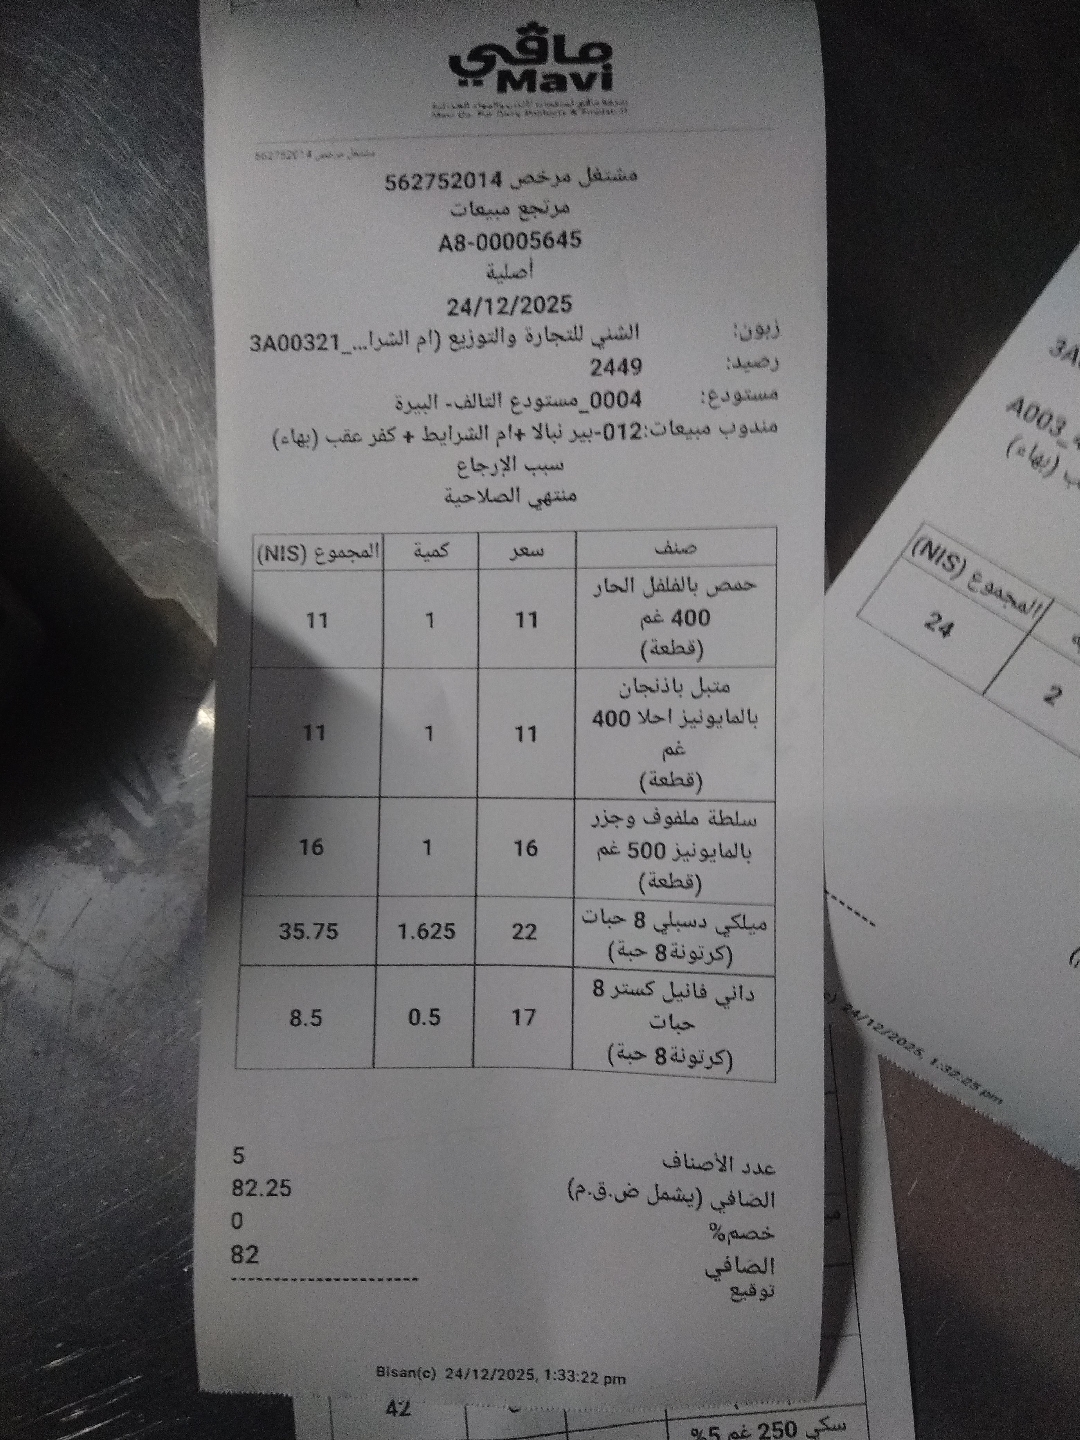 ماڤي
Mavi
مشتغل مرخص 562752014
مشتغل مرخص 562752014
مرتجع مبيعات
A8-00005645
أصلية
24/12/2025
زبون: الشني للتجارة والتوزيع (ام الشرا..._3A00321
رصيد: 2449
مستودع: 0004_مستودع التالف- البيرة
مندوب مبيعات:012-بير نبالا +ام الشرايط + كفر عقب (بهاء)
سبب الإرجاع
منتهي الصلاحية
صنف سعر كمية المجموع (NIS)
حمص بالفلفل الحار
400 غم 11 1 11
(قطعة)
متبل باذنجان
بالمايونيز احلا 400 11 1 11
غم
(قطعة)
سلطة ملفوف وجزر
بالمايونيز 500 غم 16 1 16
(قطعة)
ميلكي دسبلي 8 حبات 22 1.625 35.75
(كرتونة8 حبة)
داني فانيل كستر 8
حبات 17 0.5 8.5
(كرتونة8 حبة)
عدد الأصناف 5
الصافي (يشمل ض.ق.م) 82.25
خصم% 0
الصافي 82
توقيع
Bisan(c) 24/12/2025, 1:33:22 pm
A003_
(بهاء)
المجموع (NIS)
24
2
24/12/2025, 1:32:25 pm
42
سكي 250 غم 5%